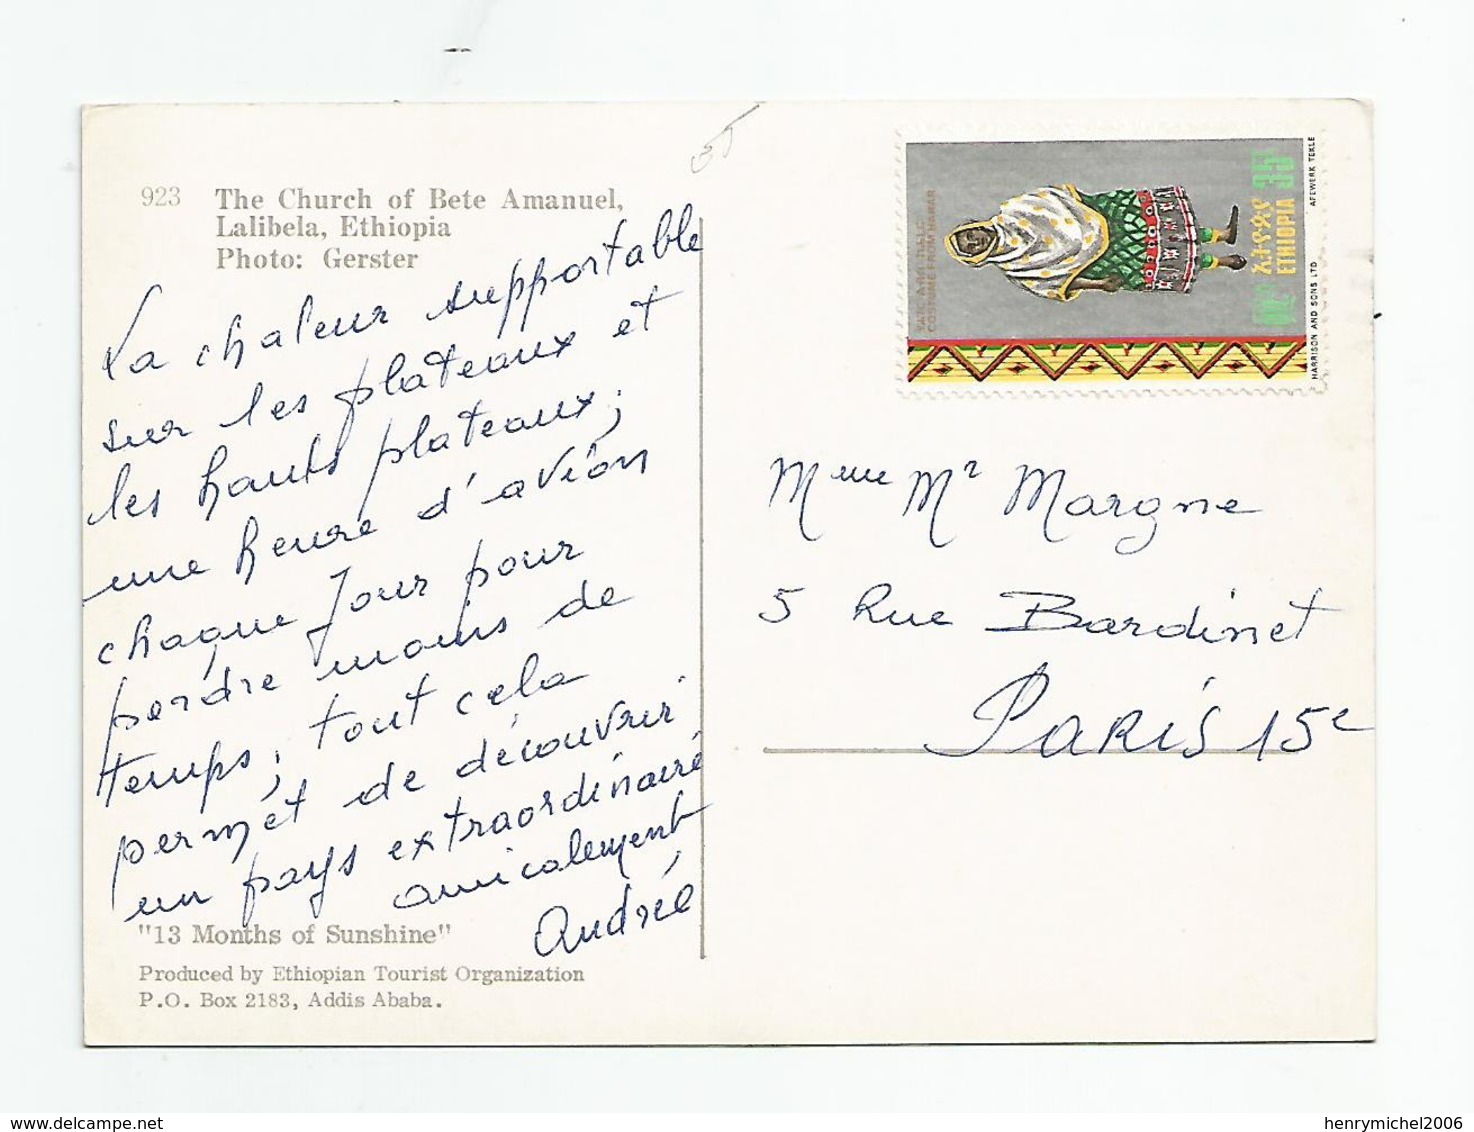 923 The Church of Bete Amanuel,
Lalibela, Ethiopia
Photo: Gerster
La chaleur supportable
sur les plateaux et
les hauts plateaux;
une heure d'avion
chaque jour pour
perdre moins de
temps; tout cela
permet de découvrir
un pays extraordinaire
amicalement
Andrée
"13 Months of Sunshine"
Produced by Ethiopian Tourist Organization
P.O. Box 2183, Addis Ababa.
35
COSTUME FROM HARAR
ኢትዮጵያ
ETHIOPIA
35
HARRISON AND SONS LTD
AFEWERK TEKLE
Mme Mr Margne
5 Rue Bardinet
PARIS 15e
www.delcampe.net
henrymichel2006